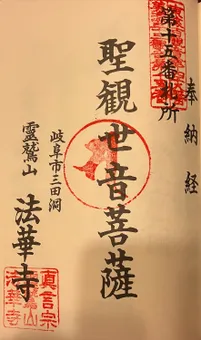 奉納経
第十五番札所
聖観世音菩薩
岐阜市三田洞
霊鷲山
法華寺
真言宗
霊鷲山
法華寺